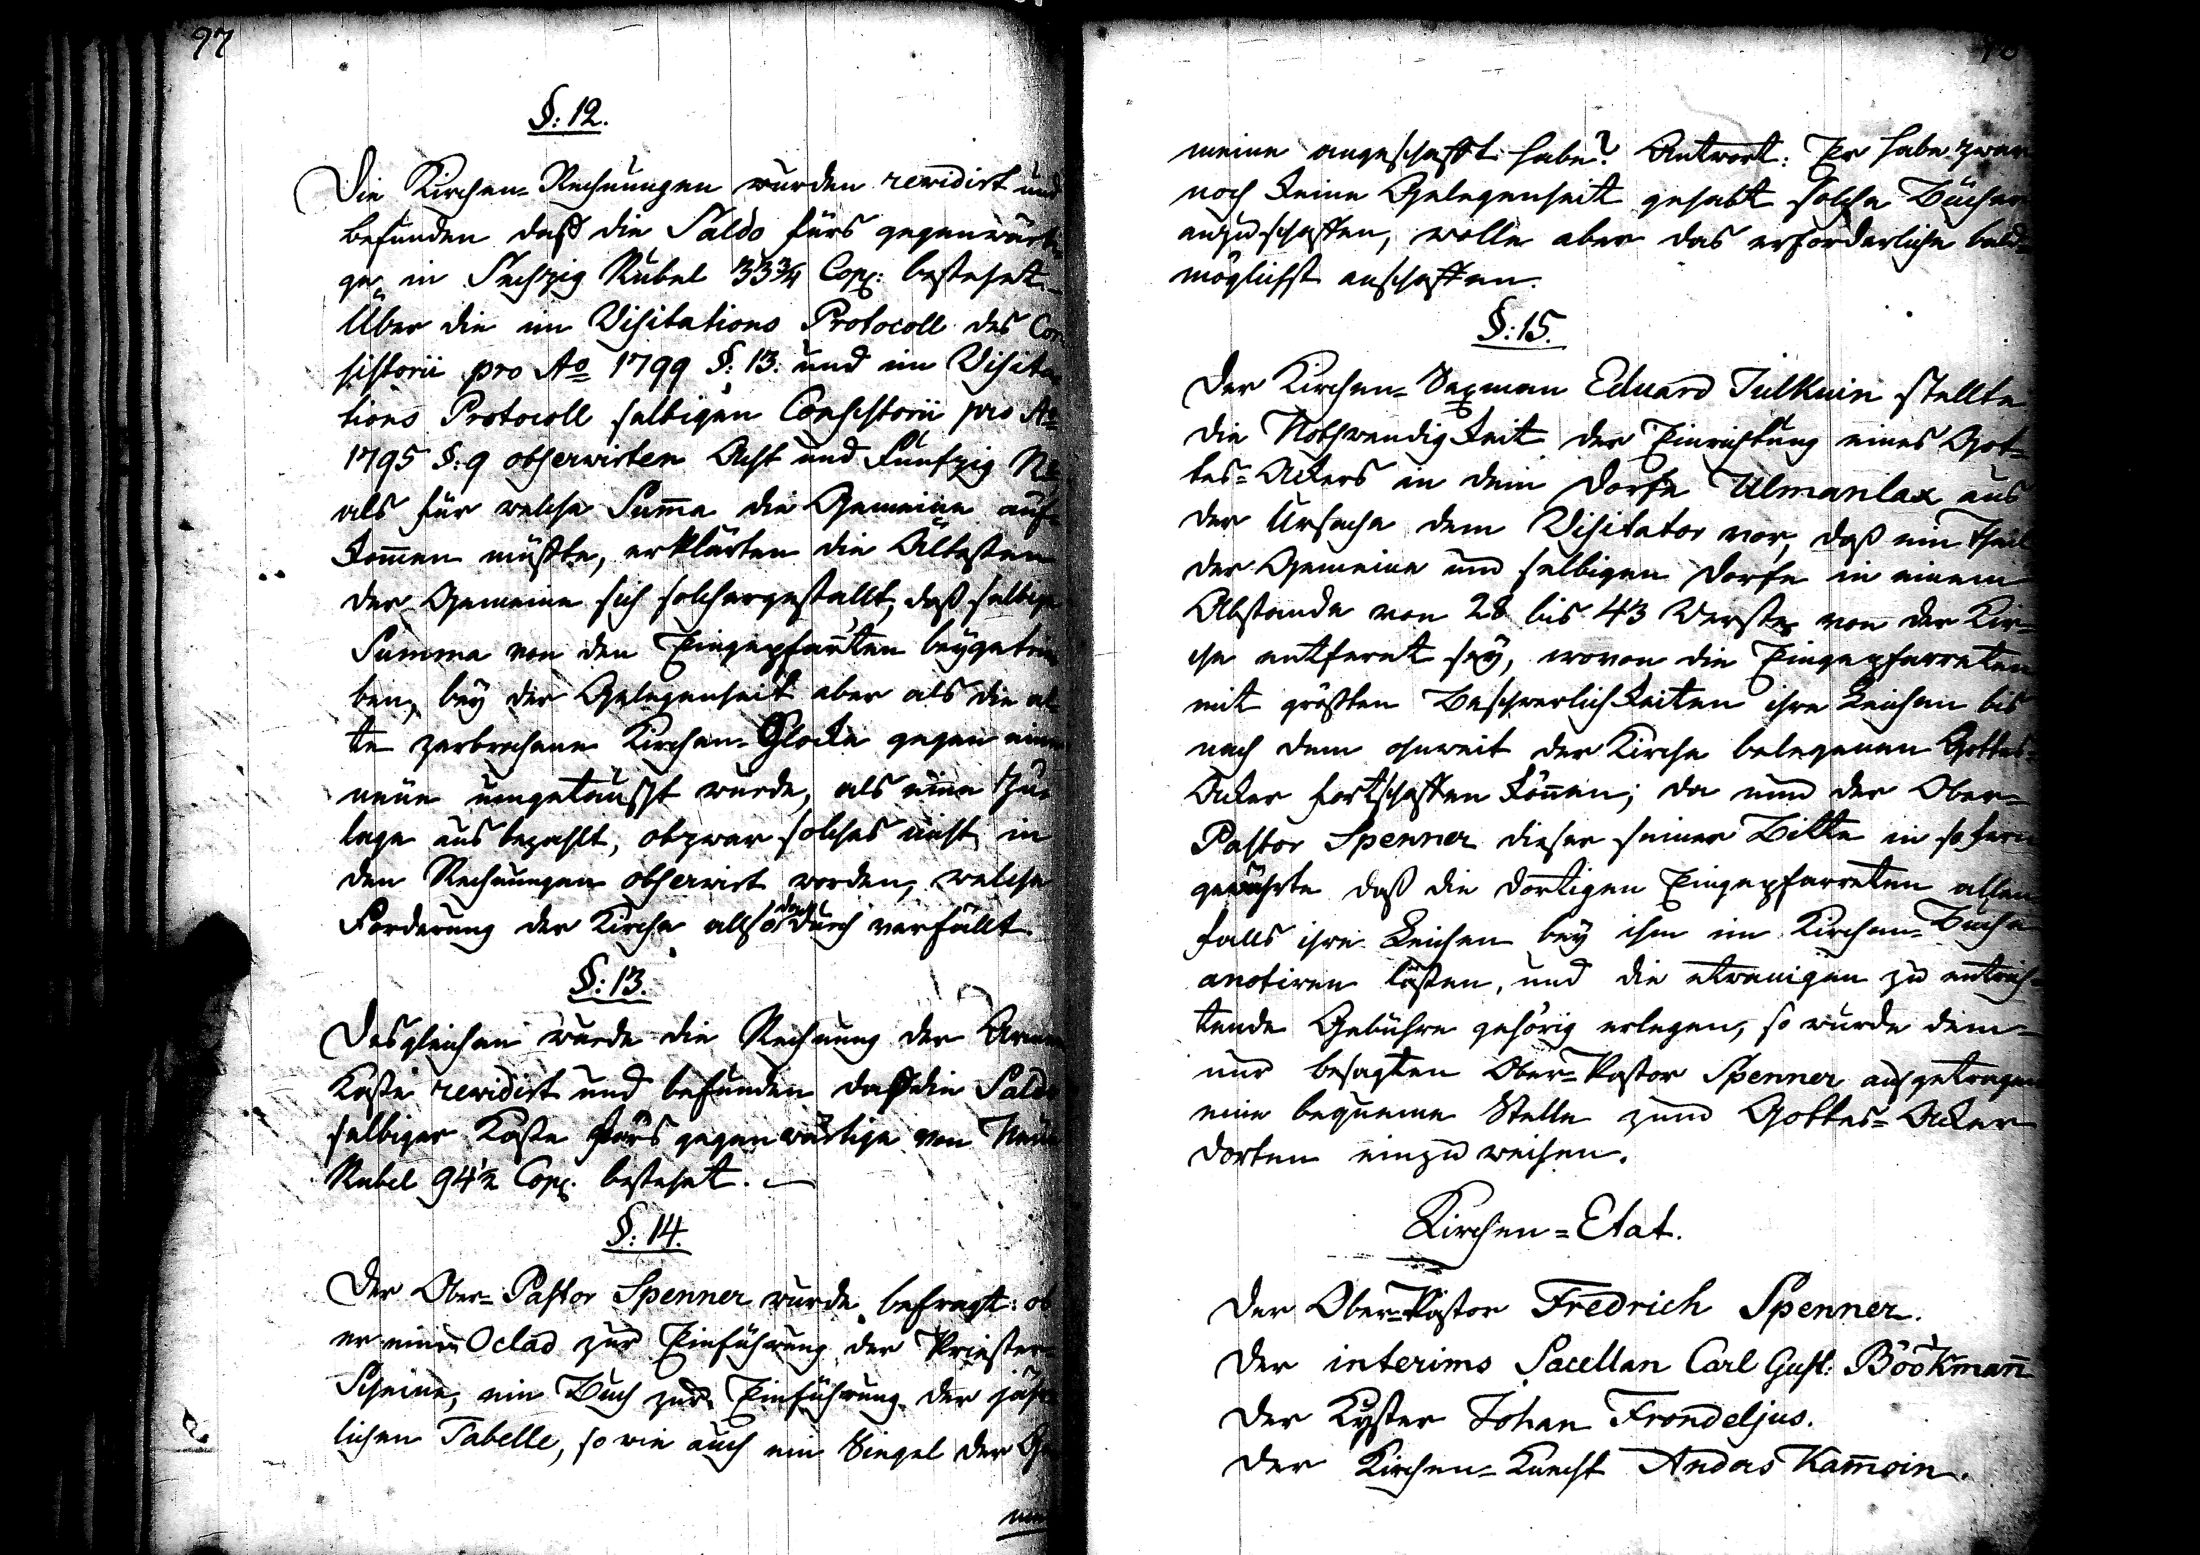 97
§: 12.
Die Kirchen-Rechnungen wurden revidirt und
befunden daß die Saldo fürs gegenwärti-
ge in Sechzig Rubel 33¾ Cop: bestehet.
Über die im Visitations Protocoll des Con-
sistorii pro Ao 1799 §: 13. und im Visita-
tions Protocoll selbigen Consistorii pro Ao
1795 §: 9 observirten Acht und Fünfzig
als für welche Summa die Gemeine auf-
kommen müßte, erklärten die Ältesten
der Gemeine sich solchergestallt, daß selbige
Summa von den Eingepfarrten beygetrie-
ben, bey der Gelegenheit aber als die al-
te zerbrochene Kirchen-Glocke gegen eine
neüe umgetäuscht wurde, als eine Zu-
lage aus bezahlt, obzwar solches nicht in
den Rechnungen observirt worden, welche
Forderung der Kirche also dadurch verfällt.
§: 13.
Desgleichen wurde die Rechnung der Armen
Kaße revidirt und befunden daß die Saldo
selbiger Kaße fürs gegenwärtige von Neün
Rubel 94½ Cop. bestehet.
§: 14.
Der Ober-Pastor Spenner wurde befragt: ob
er einen Oclad zur Einführung der Priester-
Scheine, ein Buch zur Einführung der jähr-
lichen Tabelle, so wie auch ein Siegel der Ge-
meine angeschafft habe? Antwort: Er habe zwar
noch keine Gelegenheit gehabt solche Bücher
anzuschaffen, wolle aber das erforderliche bald-
möglichst anschaffen.
§: 15.
Der Kirchen-Sexman Eduard Julkuin stellte
die Nothwendigkeit der Einrichtung eines Got-
tes-Ackers in dem Dorfe Ulmanlax aus
der Ursache dem Visitator vor, daß ein Theil
der Gemeine und selbigen Dorfe in einem
Abstande von 28 bis 43 Werste von der Kir-
che entfernt sey, wovon die Eingepfarreten
mit größten Beschwerlichkeiten ihre Leichen bis
nach dem ohnweit der Kirche belegenen Gottes-
Acker fortschaffen können; da nun der Ober-
Pastor Spenner dieser seiner Bitte in so fern
gewährte daß die dortigen Eingepfarreten allen
falls ihre Leichen bey ihm im Kirchen-Buche
anotiren laßen, und die etwanigen zu entrich-
tende Gebühre gehörig erlegen, so wurde dem-
nur besagten Ober-Pastor Spenner aufgetragen
eine bequeme Stelle zum Gottes-Acker
dorten einzuweisen.
Kirchen-Etat.
Der Ober-Pastor Fredrich Spenner.
Der interims Sacellan Carl Gust: Böökman̄
Der Kyster Johan Frondeljus.
Der Kirchen-Knecht Anders Kam̄oin.